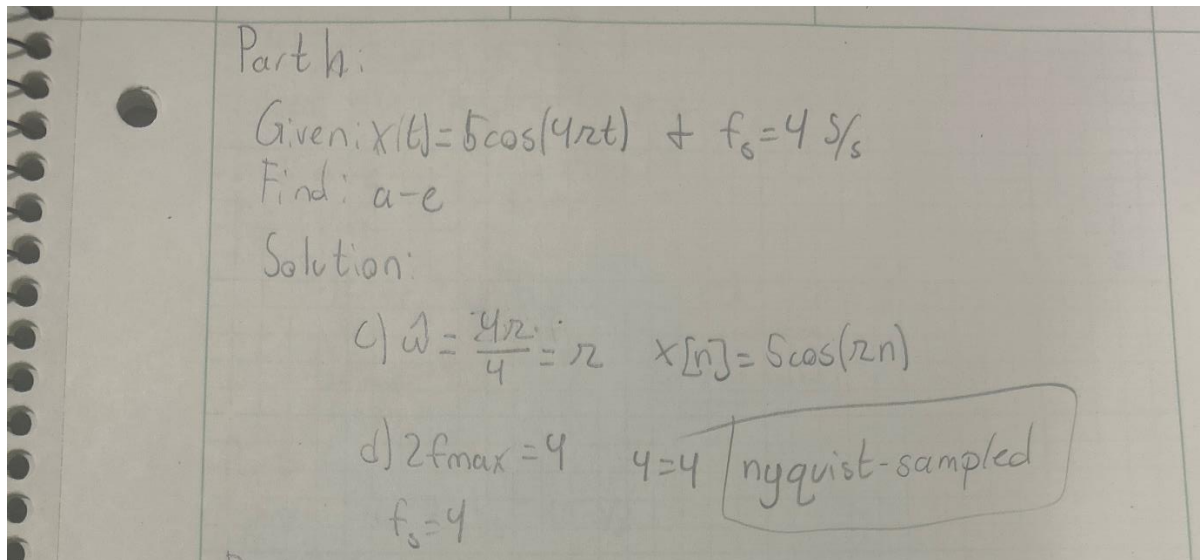 Part h:
Given: x(t)=5cos(4πt) + f_s=4 S/s
Find: a-e
Solution:
c) ω̂ = 4π/4 = π x[n]=5cos(πn)
d) 2fmax=4 4=4 nyquist-sampled
f_s=4